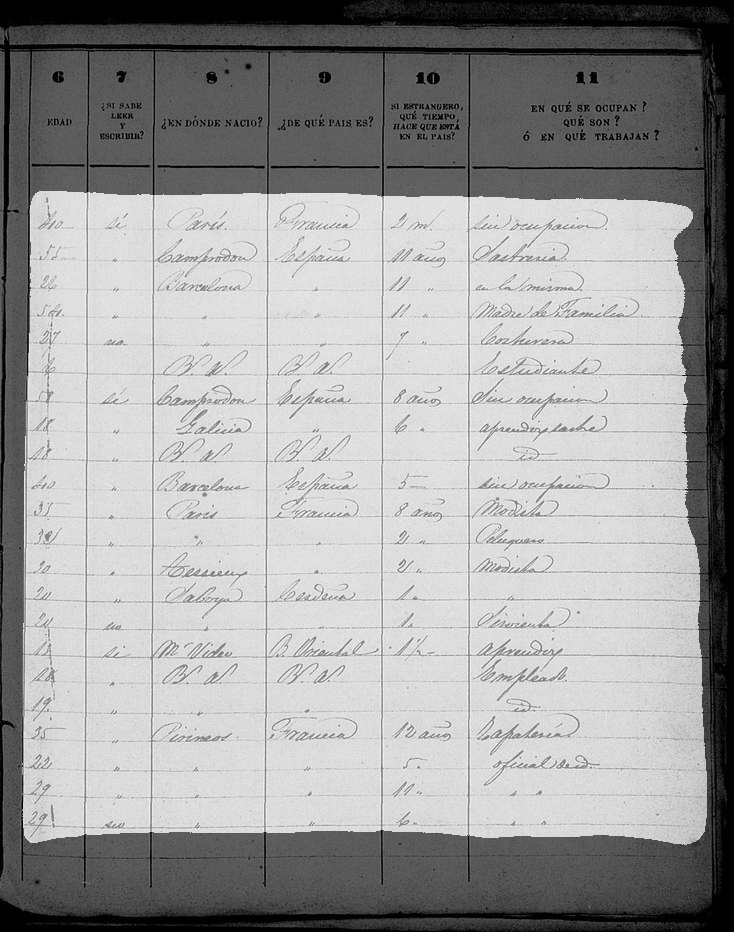 6 7 8 9 10 11
EDAD ¿SI SABE LEER Y ESCRIBIR? ¿EN DÓNDE NACIÓ? ¿DE QUÉ PAIS ES? SI ESTRANGERO, QUÉ TIEMPO HACE QUE ESTÁ EN EL PAIS? EN QUÉ SE OCUPAN? QUÉ SON? Ó EN QUÉ TRABAJAN?
40 sí París. Francia 2 m. sin ocupacion.
55 " Camprodon España 11 años Sastreria
26 " Barcelona " 11 " en la misma
50 " " " 11 " Madre de Familia
27 no " " 7 " Costurera
B. A. B. A. Estudiante
58 sé Camprodon España 8 años Sin ocupacion
18 " Galicia " 6 " aprendiz sastre
18 " B. A. B. A. id
40 " Barcelona España 5 — sin ocupacion
35 " Paris Francia 8 años Modista
" " " 2 " Peluquero
20 " " 2 " Modista
20 " Saboya Cerdeña 1 " "
20 no " " 1 " Sirvienta
18 si Mte Video B. Oriental 1 1/2 — aprendiz
18 " B. A. B. A. Empleado.
19 " " " id.
35 " Pirineos Francia 12 años Zapateria
22 " " " 5 " oficial de id.
29 " " " 10 " " "
29 no " " 6 " " "